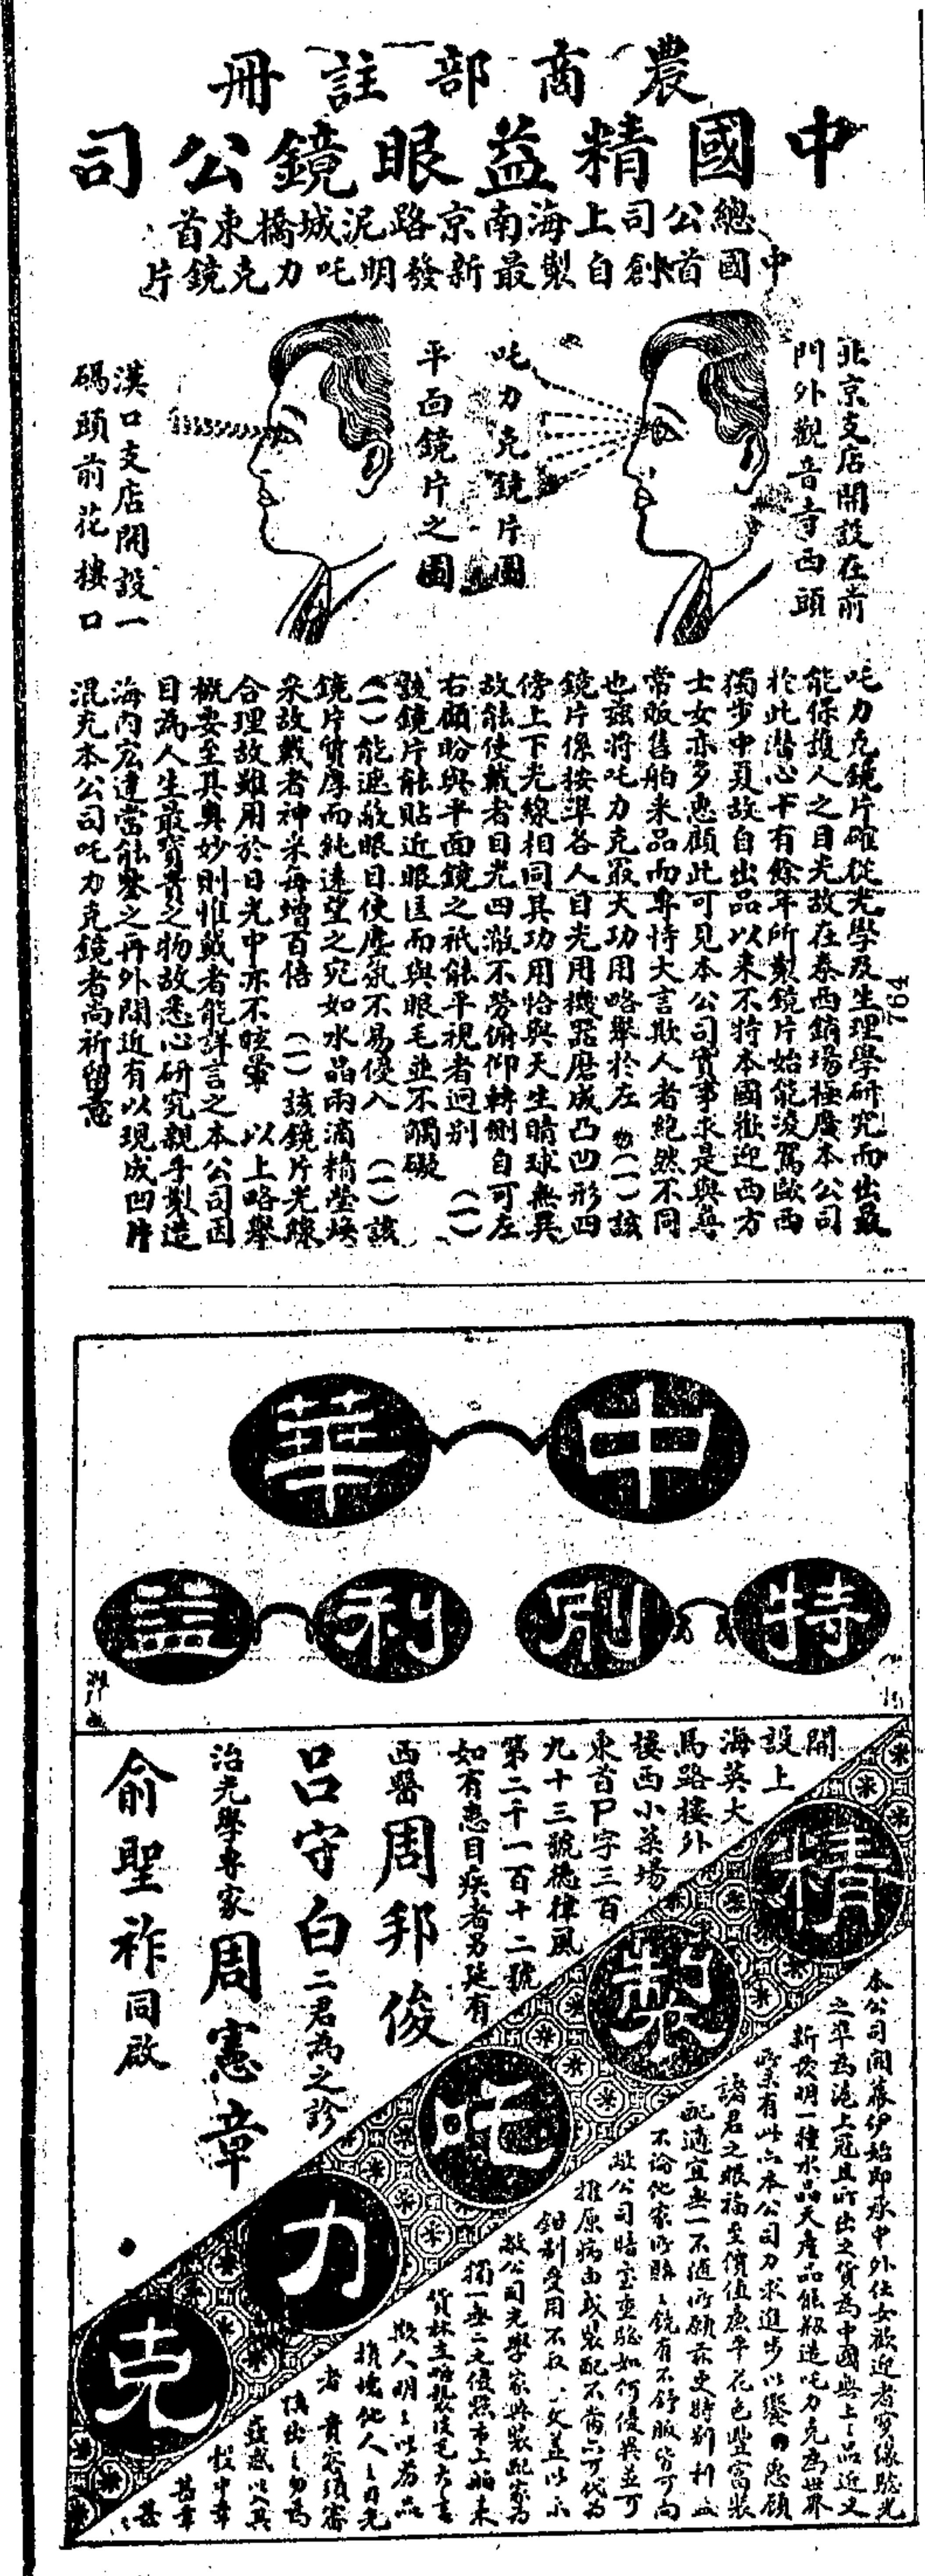 農商部註冊
中國精益眼鏡公司
總公司上海南京路泥城橋東首
中國首創自製最新發明吒力克鏡片
北京支店開設在前
門外觀音寺西頭
吒力克鏡片圖
平面鏡片之圖
漢口支店開設一
碼頭前花樓口
吒力克鏡片確從光學及生理學研究而出最
能保護人之目光故在泰西銷場極廣本公司
於此潛心十有餘年所製鏡片始能凌駕歐西
獨步中夏故自出品以來不特本國歡迎西方
士女亦多惠顧此可見本公司實事求是與尋
常販售舶來品而專恃大言欺人者絕然不同
也茲將吒力克最大功用略舉於左 (一)該
鏡片係按準各人目光用機器磨成凸凹形四
傍上下光線相同其功用恰與天生睛球無異
故能使戴者目光四澈不勞俯仰轉側自可左
右顧盼與平面鏡之祇能平視者迥別 (一)
該鏡片能貼近眼匡而與眼毛並不觸礙
(一)能遮蔽眼目使塵氛不易侵入 (一)該
鏡片質厚而純遠望之宛如水晶兩滴精瑩煥
采故戴者神采每增百倍 (一)該鏡片光線
合理故雖用於日光中亦不眩暈 以上略舉
概要至其奧妙則惟戴者能詳言之本公司因
目為人生最寶貴之物故悉心研究親手製造
海內宏達當能鑒之再外間近有以現成凹片
混充本公司吒力克鏡者尚祈留意
764
中華
特別
利益
精製吒力克
開
設上
海英大
馬路樓外
樓西小菜場
東首P字三百
九十三號德律風
第二千一百十二號
如有患目疾者另延有
西醫周邦俊
呂守白二君為之診
治光學專家周憲章
俞聖祚同啟
本公司開幕伊始即承中外仕女歡迎者實緣驗光
之準為滬上冠且所出之貨為中國無上之品近又
新發明一種水晶天產品能製造吒力克為世界
所未有此亦本公司力求進步以饗惠顧
諸君之眼福至價值廉平花色豐富裝
配適宜無一不隨所願茲更特別利益
不論他家所購之鏡有不舒服皆可向
敝公司暗室重驗如何優異並可
推原病由或裝配不當亦可代為
鉗制受用不取一文並以示
敝公司光學家與裝配家為
獨一無二之優點市上舶來
欺人明之以劣品
損壞他人之目光
者 貴客須審
慎出之勿為